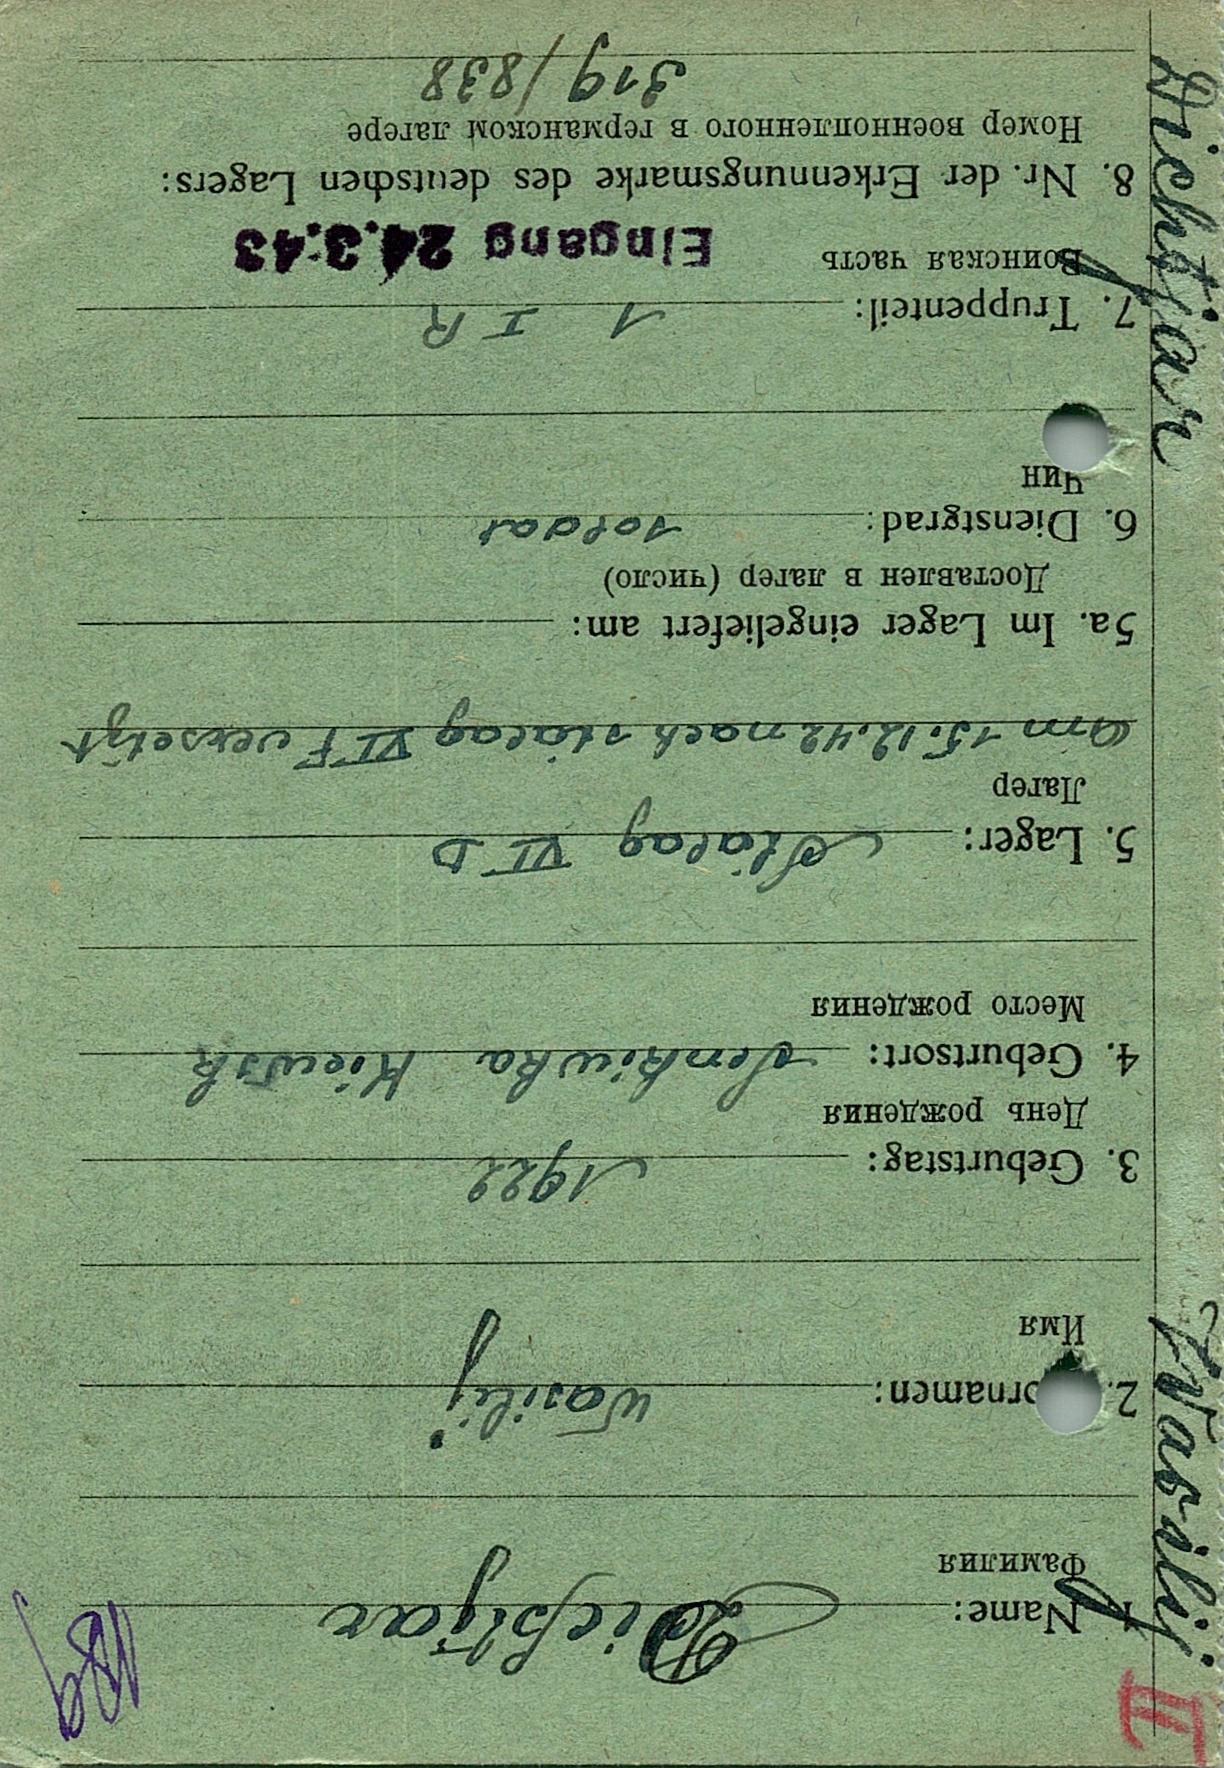 II
189
1. Name: Diehtjar
Фамилия
2. ornamen: Wasilij
Имя
3. Geburtstag: 1922
День рождения
4. Geburtsort: Senkiwka Kiewsk
Место рождения
5. Lager: Stalag VI D
Лагер
am 15.12.42 nach Stalag VI F versetzt
5a. Im Lager eingeliefert am:
Доставлен в лагер (число)
6. Dienstgrad: soldat
Чин
7. Truppenteil: 1 I R
Воинская часть
Eingang 24.3.43
8. Nr. der Erkennungsmarke des deutschen Lagers:
Номер военнопленного в германском лагере
319/838
Diehtjar Wasilij